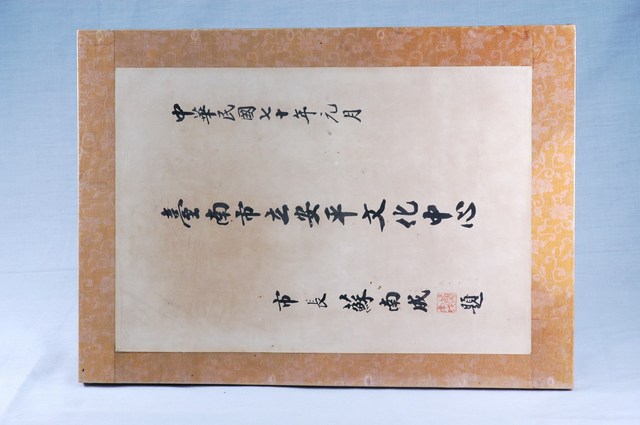 中華民國七十年元月
臺南市立安平文化中心
市長 蘇南成 題